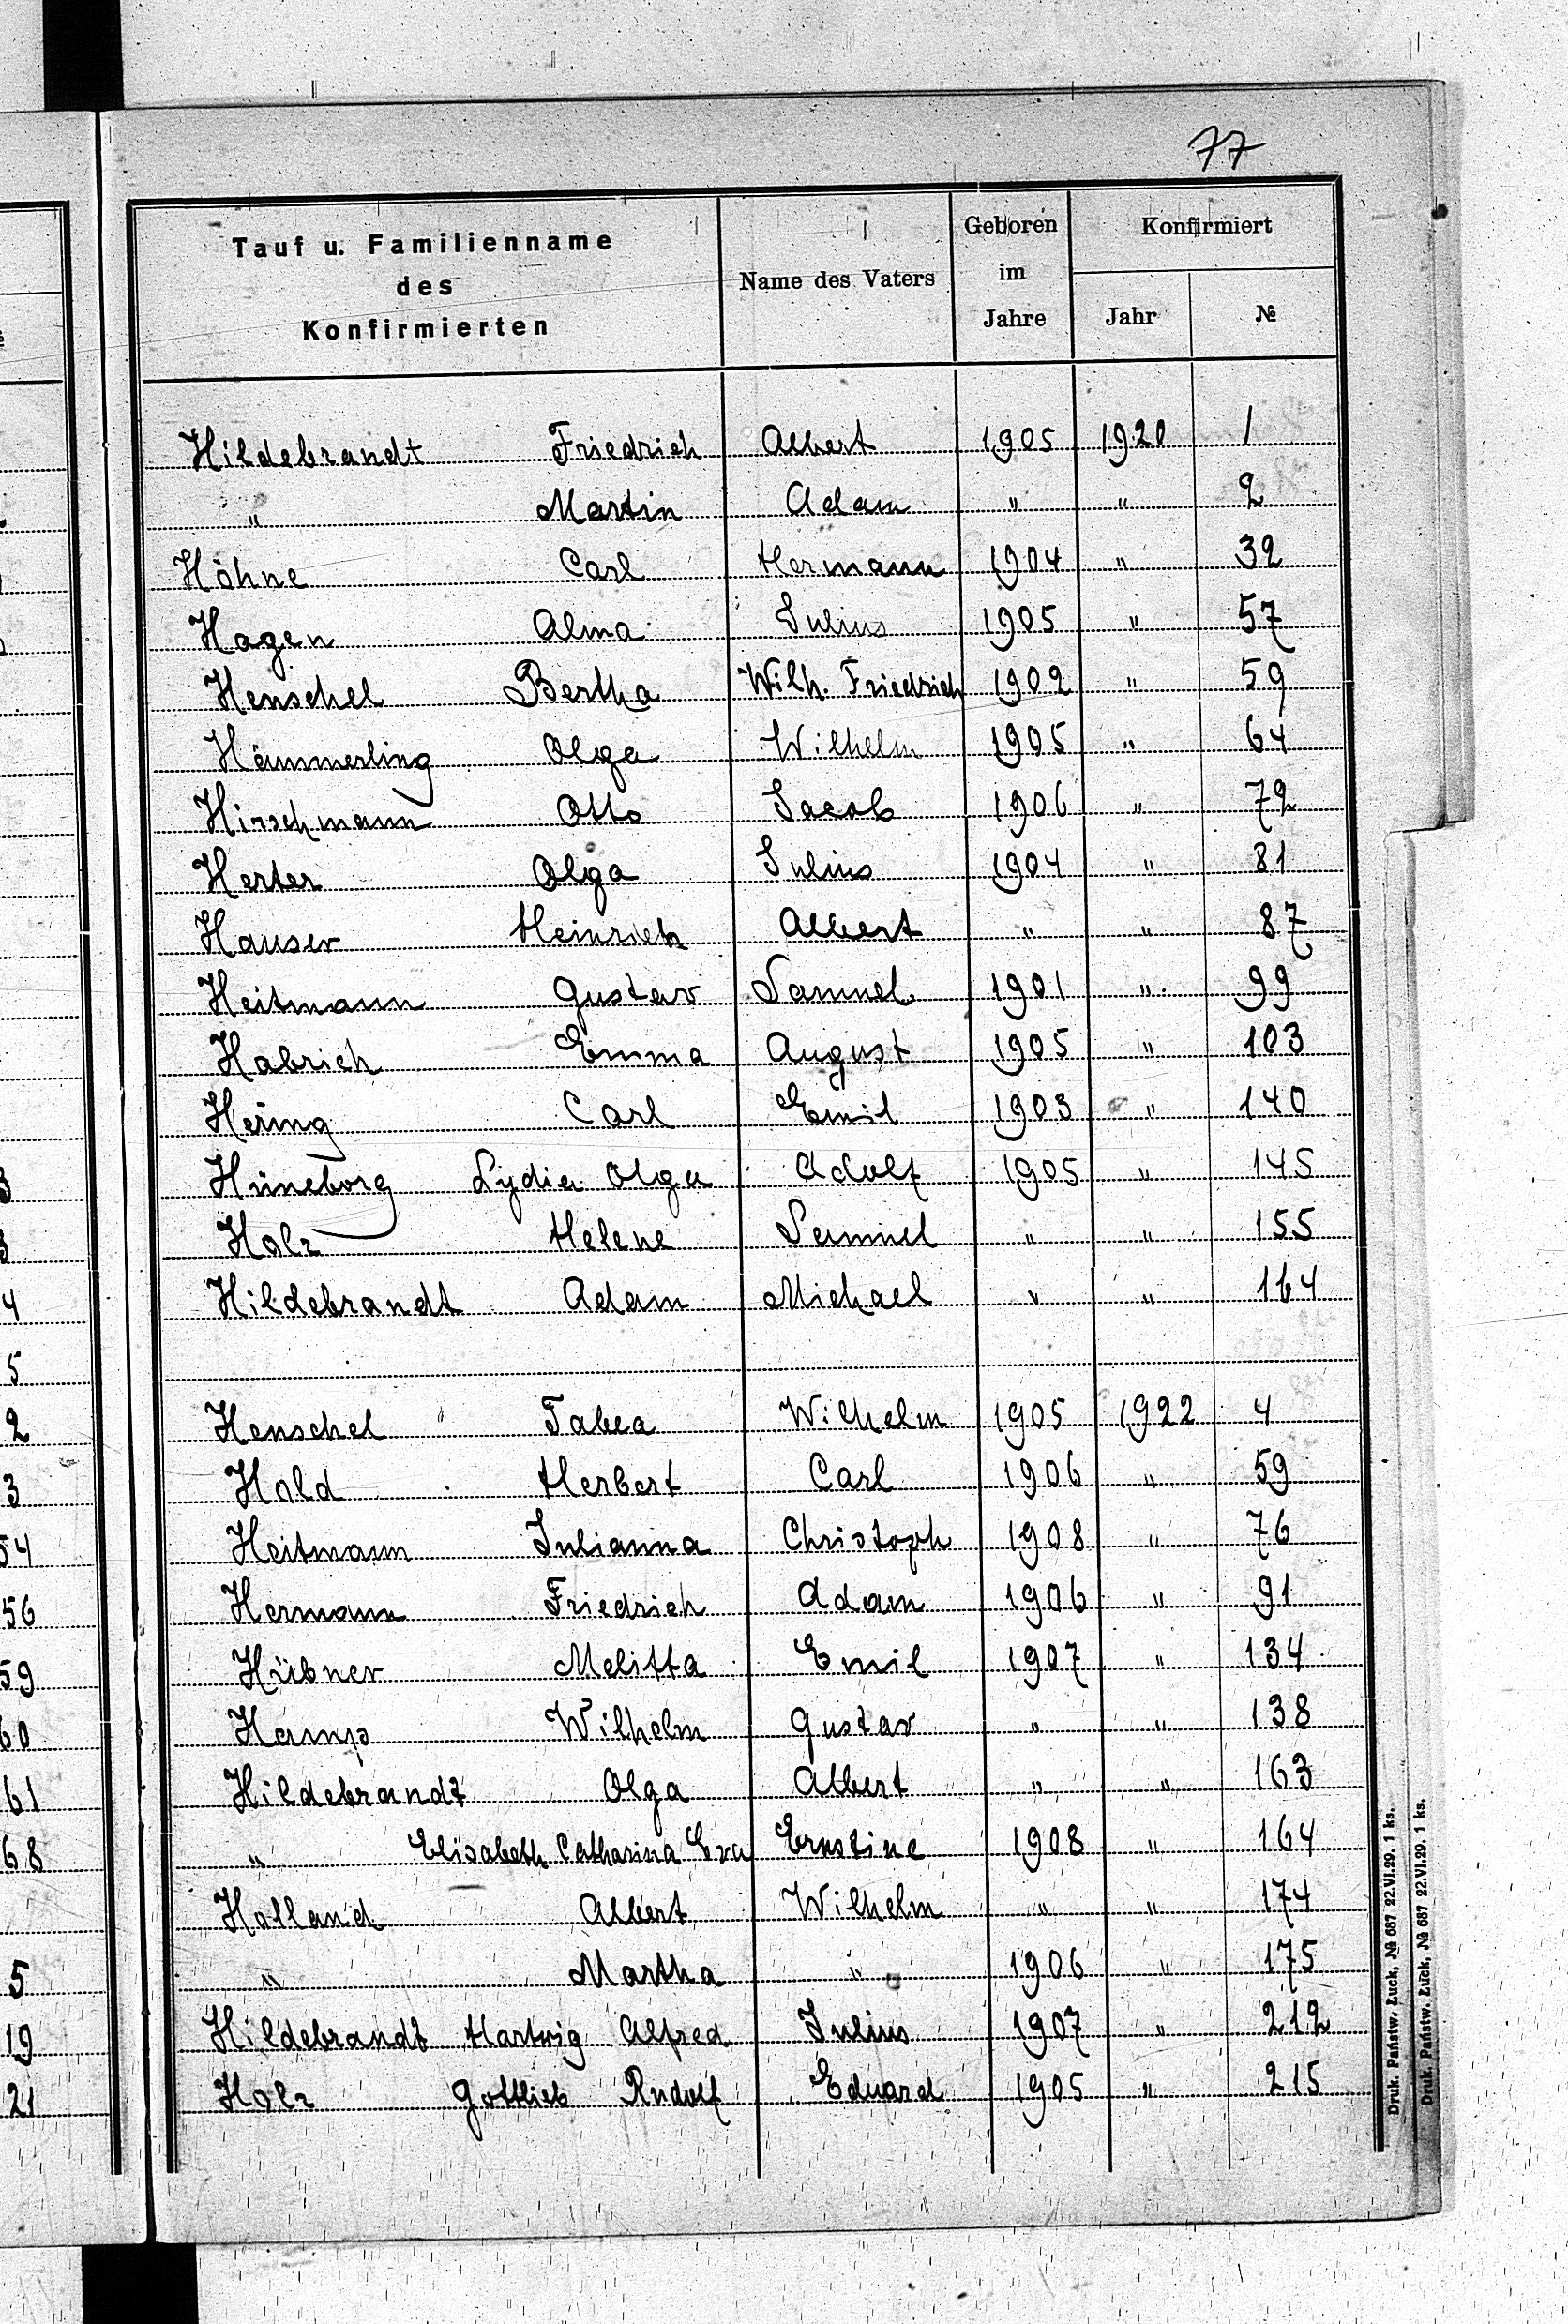 77
Tauf u. Familienname des Konfirmierten | Name des Vaters | Geboren im Jahre | Konfirmiert Jahr | №
Hildebrandt Friedrich Albert 1905 1920 1
" Martin Adam " " 2
Höhne Carl Hermann 1904 " 32
Hagen Alma Julius 1905 " 57
Henschel Bertha Wilh. Friedrich 1902 " 59
Hämmerling Olga Wilhelm 1905 " 64
Hirschmann Otto Jacob 1906 " 72
Herter Olga Julius 1904 " 81
Hauser Heinrich Albert " " 87
Heitmann Gustav Samuel 1901 " 99
Habrich Emma August 1905 " 103
Hering Carl Emil 1903 " 140
Hüneborg Lydia Olga Adolf 1905 " 145
Holz Helene Samuel " " 155
Hildebrandt Adam Michael " " 164
Henschel Tabea Wilhelm 1905 1922 4
Hold Herbert Carl 1906 " 59
Heitmann Julianna Christoph 1908 " 76
Hermann Friedrich Adam 1906 " 91
Hübner Melitta Emil 1907 " 134
Hamp Wilhelm Gustav " " 138
Hildebrandt Olga Albert " " 163
" Elisabeth Catharina Eva Ernstine 1908 " 164
Holland Albert Wilhelm " " 174
" Martha " 1906 " 175
Hildebrandt Hartwig Alfred Julius 1907 " 212
Holz Gottlieb Rudolf Eduard 1905 " 215
Druk. Państw. Łuck, № 687 22.VI.29. 1 ks.
Druk. Państw. Łuck, № 687 22.VI.29. 1 ks.